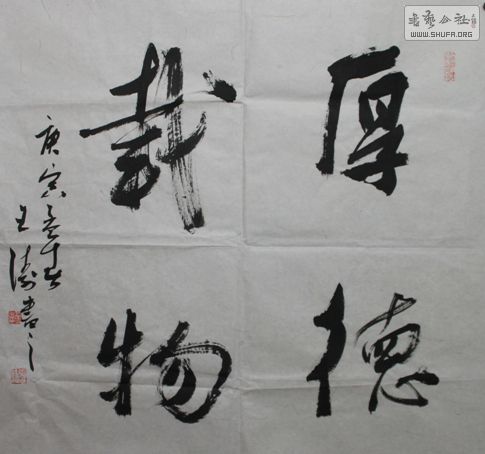 厚德
载物
庚寅孟春
王涛書之
書艺公社
WWW.SHUFA.ORG